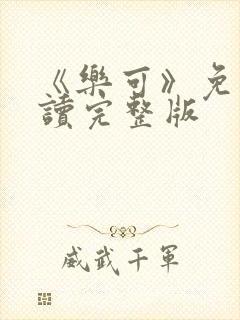 《樂可》免
讀完整版
威武千軍